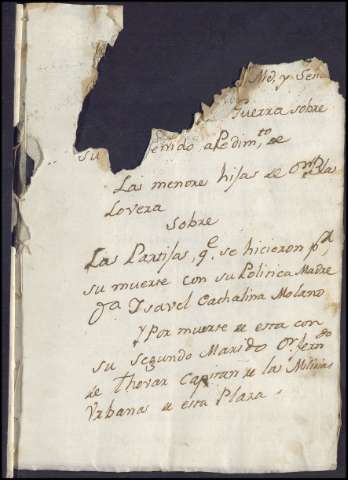 Md, y Seña
Guerra sobre
su enido a Pedim,to de
Las menore hijas de Dn Blas
Lovera
Sobre
Las Partijas, q.e se hicieron pr
su muerte con su Politica Madre
Da Ysavel Cathalina Molano
y Por muerte de esta con
su Segundo Marido Dn ferndo
de Thovar Capitan de las Milicias
Vrbanas de esta Plaza